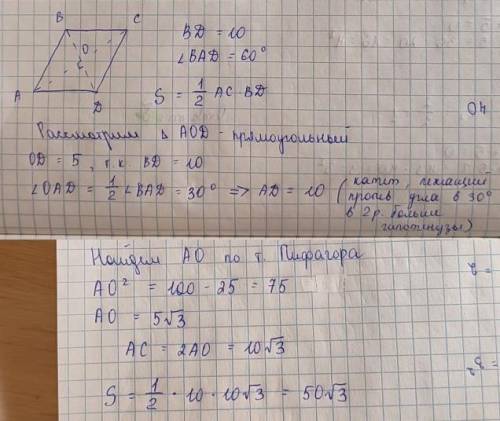 B C
BD = 10
O
∠BAD = 60°
A D
S = 1/2 AC · BD
40
Рассмотрим Δ AOD - прямоугольный
OD = 5, т.к. BD = 10
∠OAD = 1/2 ∠BAD = 30° => AD = 10 (катет, лежащий
против угла в 30°
в 2 р. больше
гипотенузы)
Найдем AO по т. Пифагора
AO² = 100 - 25 = 75
AO = 5√3
AC = 2AO = 10√3
S = 1/2 · 10 · 10√3 = 50√3